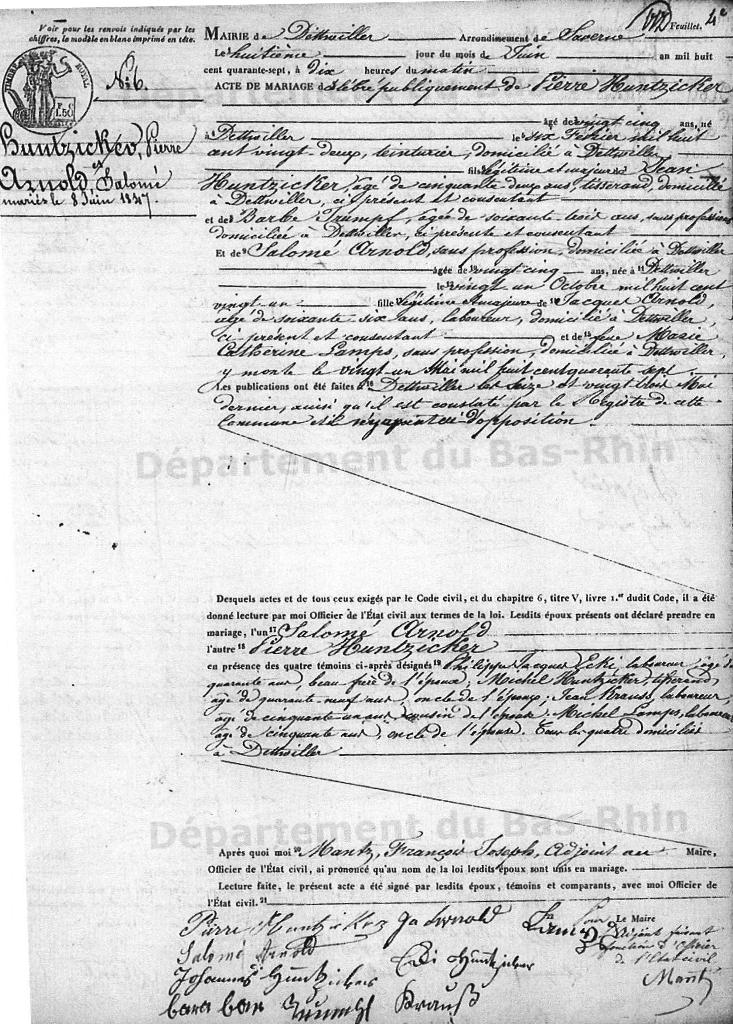 Voir pour les renvois indiqués par les
chiffres, le modèle en blanc imprimé en tête.
TIMBRE ROYAL
F. C.
1.50
N: 6.
Huntzicker, Pierre
et
Arnold, Salomé
mariés le 8 Juin 1847.
Feuillet. 4e
MAIRIE de Dettwiller Arrondissement de Saverne
Le huitième jour du mois de Juin an mil huit
cent quarante-sept, à Dix heures du matin
ACTE DE MARIAGE célébré publiquement de Pierre Huntzicker
âgé de vingt cinq ans, né
à Dettwiller le six Février mil huit
cent vingt-deux, teinturier, domicilié à Dettwiller
fils légitime et majeur de Jean
Huntzicker, agé de cinquante deux ans, tisserand, domicilié
à Dettwiller, ci présent et consentant
et de Barbe Trumpf, agée de soixante trois ans, sans profession
domiciliée à Dettwiller, ci présente et consentante
Et de Salomé Arnold, sans profession, domiciliée à Dettwiller
âgée de vingt cinq ans, née à Dettwiller
le vingt un Octobre mil huit cent
vingt un fille légitime et majeure de Jacques Arnold,
agé de soixante six ans, laboureur, domicilié à Dettwiller,
ci présent et consentant et de feue Marie
Catherine Lamps, sans profession, domiciliée à Dettwiller,
y morte le vingt un Mai mil huit cent quarante sept.
Les publications ont été faites à Dettwiller les seize et vingt trois Mai
dernier, ainsi qu'il est constaté par le Registre de cette
Commune et il n'y a point eu d'opposition.
Département du Bas-Rhin
Desquels actes et de tous ceux exigés par le Code civil, et du chapitre 6, titre V, livre 1.er dudit Code, il a été
donné lecture par moi Officier de l'État civil aux termes de la loi. Lesdits époux présents ont déclaré prendre en
mariage, l'un 17 Salomé Arnold
l'autre 18 Pierre Huntzicker
en présence des quatre témoins ci-après désignés 19 Philippe Jacques Ecki, laboureur, agé de
quarante ans, beau frère de l'épouse; Michel Huntzicker, tisserand,
agé de quarante-neuf ans, oncle de l'époux; Jean Krauss, laboureur,
agé de cinquante un ans cousin de l'épouse; Michel Lamps, laboureur
agé de cinquante ans, oncle de l'épouse. Tous les quatre domiciliés
à Dettwiller
Département du Bas-Rhin
Après quoi moi 20 Mantz, François Joseph, Adjoint au Maire,
Officier de l'État civil, ai prononcé qu'au nom de la loi lesdits époux sont unis en mariage.
Lecture faite, le présent acte a été signé par lesdits époux, témoins et comparants, avec moi Officier de
l'État civil. 21
Pierre Huntzicker
Pour Le Maire
fonction d'Officier
de l'Etat civil
Salomé Arnold
Ecki Huntzicker
Mantz
Johannes Huntzicker
barabar Krauß